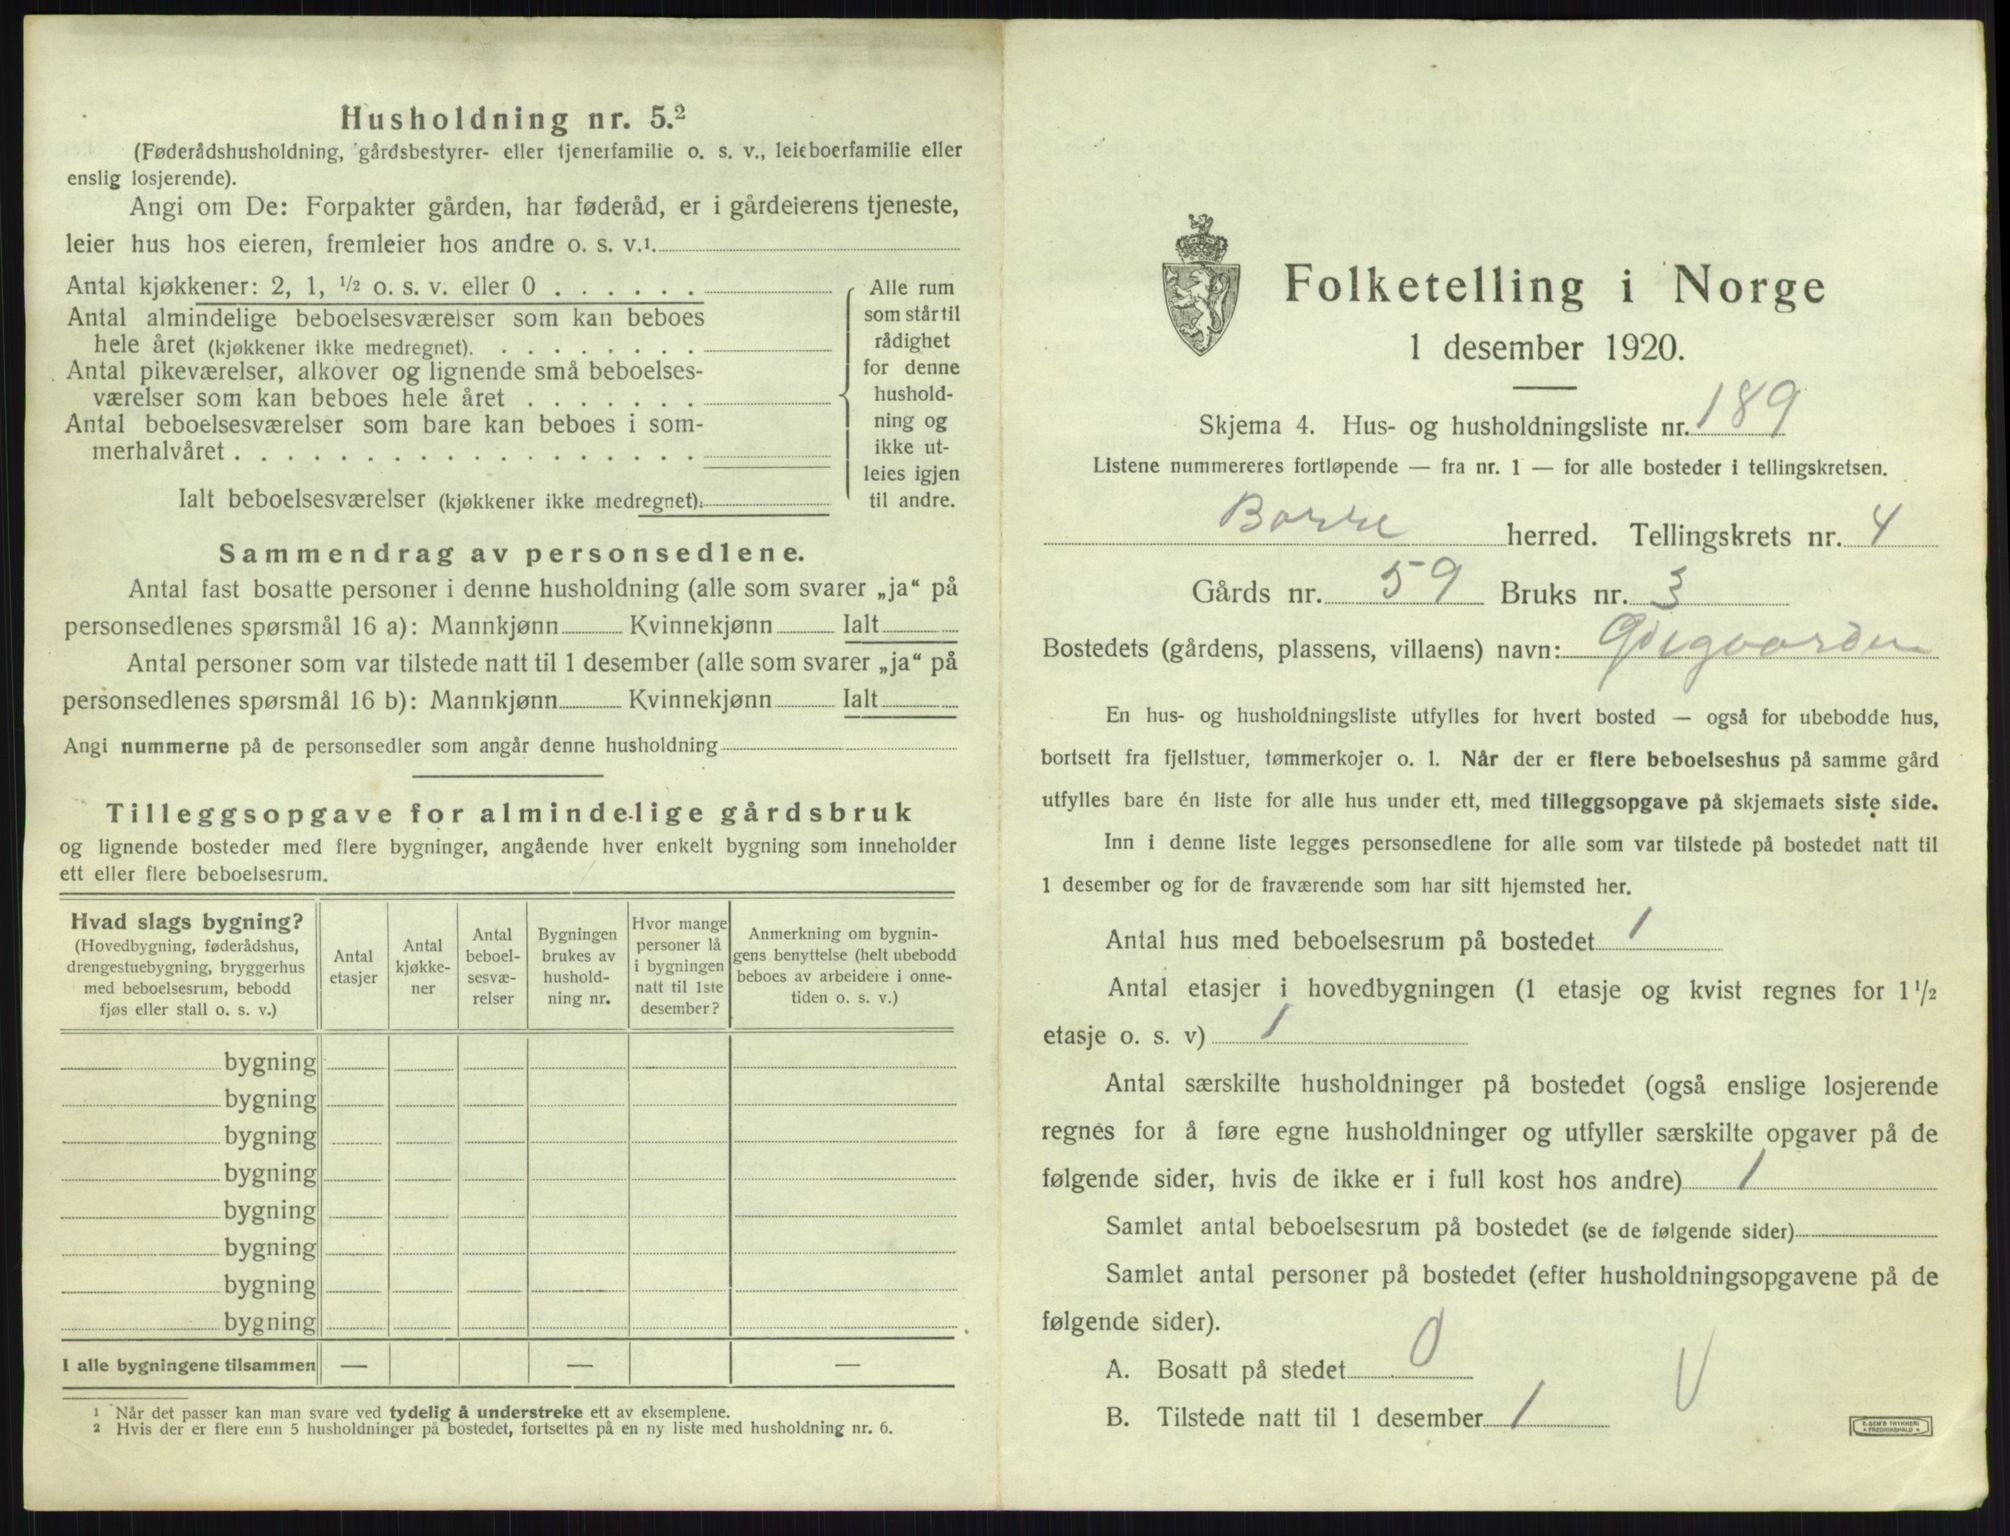 Husholdning nr. 5.²
(Føderådshusholdning, gårdsbestyrer- eller tjenerfamilie o. s. v., leieboerfamilie eller
enslig losjerende).
Angi om De: Forpakter gården, har føderåd, er i gårdeierens tjeneste,
leier hus hos eieren, fremleier hos andre o. s. v.¹
Antal kjøkkener: 2, 1, ½ o. s. v. eller 0 . . . . . .
Antal almindelige beboelsesværelser som kan beboes
hele året (kjøkkener ikke medregnet). . . . . . . . .
Antal pikeværelser, alkover og lignende små beboelses-
værelser som kan beboes hele året . . . . . . .
Antal beboelsesværelser som bare kan beboes i som-
merhalvåret . . . . . . . . . . . . . . . . . .
Ialt beboelsesværelser (kjøkkener ikke medregnet):
Alle rum
som står til
rådighet
for denne
hushold-
ning og
ikke ut-
leies igjen
til andre.
Sammendrag av personsedlene.
Antal fast bosatte personer i denne husholdning (alle som svarer „ja“ på
personsedlenes spørsmål 16 a): Mannkjønn Kvinnekjønn Ialt
Antal personer som var tilstede natt til 1 desember (alle som svarer „ja“ på
personsedlenes spørsmål 16 b): Mannkjønn Kvinnekjønn Ialt
Angi nummerne på de personsedler som angår denne husholdning
Tilleggsopgave for almindelige gårdsbruk
og lignende bosteder med flere bygninger, angående hver enkelt bygning som inneholder
ett eller flere beboelsesrum.
Hvad slags bygning?
(Hovedbygning, føderådshus,
drengestuebygning, bryggerhus
med beboelsesrum, bebodd
fjøs eller stall o. s. v.)
Antal
etasjer
Antal
kjøkke-
ner
Antal
beboel-
sesvæ-
relser
Bygningen
brukes av
hushold-
ning nr.
Hvor mange
personer lå
i bygningen
natt til 1ste
desember?
Anmerkning om bygnin-
gens benyttelse (helt ubebodd
beboes av arbeidere i onne-
tiden o. s. v.)
bygning
bygning
bygning
bygning
bygning
bygning
bygning
bygning
I alle bygningene tilsammen — — —
1 Når det passer kan man svare ved tydelig å understreke ett av eksemplene.
2 Hvis der er flere enn 5 husholdninger på bostedet, fortsettes på en ny liste med husholdning nr. 6.
Folketelling i Norge
1 desember 1920.
Skjema 4. Hus- og husholdningsliste nr. 189
Listene nummereres fortløpende — fra nr. 1 — for alle bosteder i tellingskretsen.
Borre herred. Tellingskrets nr. 4
Gårds nr. 59 Bruks nr. 3
Bostedets (gårdens, plassens, villaens) navn:
En hus- og husholdningsliste utfylles for hvert bosted — også for ubebodde hus,
bortsett fra fjellstuer, tømmerkojer o. l. Når der er flere beboelseshus på samme gård
utfylles bare én liste for alle hus under ett, med tilleggsopgave på skjemaets siste side.
Inn i denne liste legges personsedlene for alle som var tilstede på bostedet natt til
1 desember og for de fraværende som har sitt hjemsted her.
Antal hus med beboelsesrum på bostedet 1
Antal etasjer i hovedbygningen (1 etasje og kvist regnes for 1 ½
etasje o. s. v) 1
Antal særskilte husholdninger på bostedet (også enslige losjerende
regnes for å føre egne husholdninger og utfyller særskilte opgaver på de
følgende sider, hvis de ikke er i full kost hos andre) 1
Samlet antal beboelsesrum på bostedet (se de følgende sider)
Samlet antal personer på bostedet (efter husholdningsopgavene på de
følgende sider).
A. Bosatt på stedet 0
B. Tilstede natt til 1 desember 1